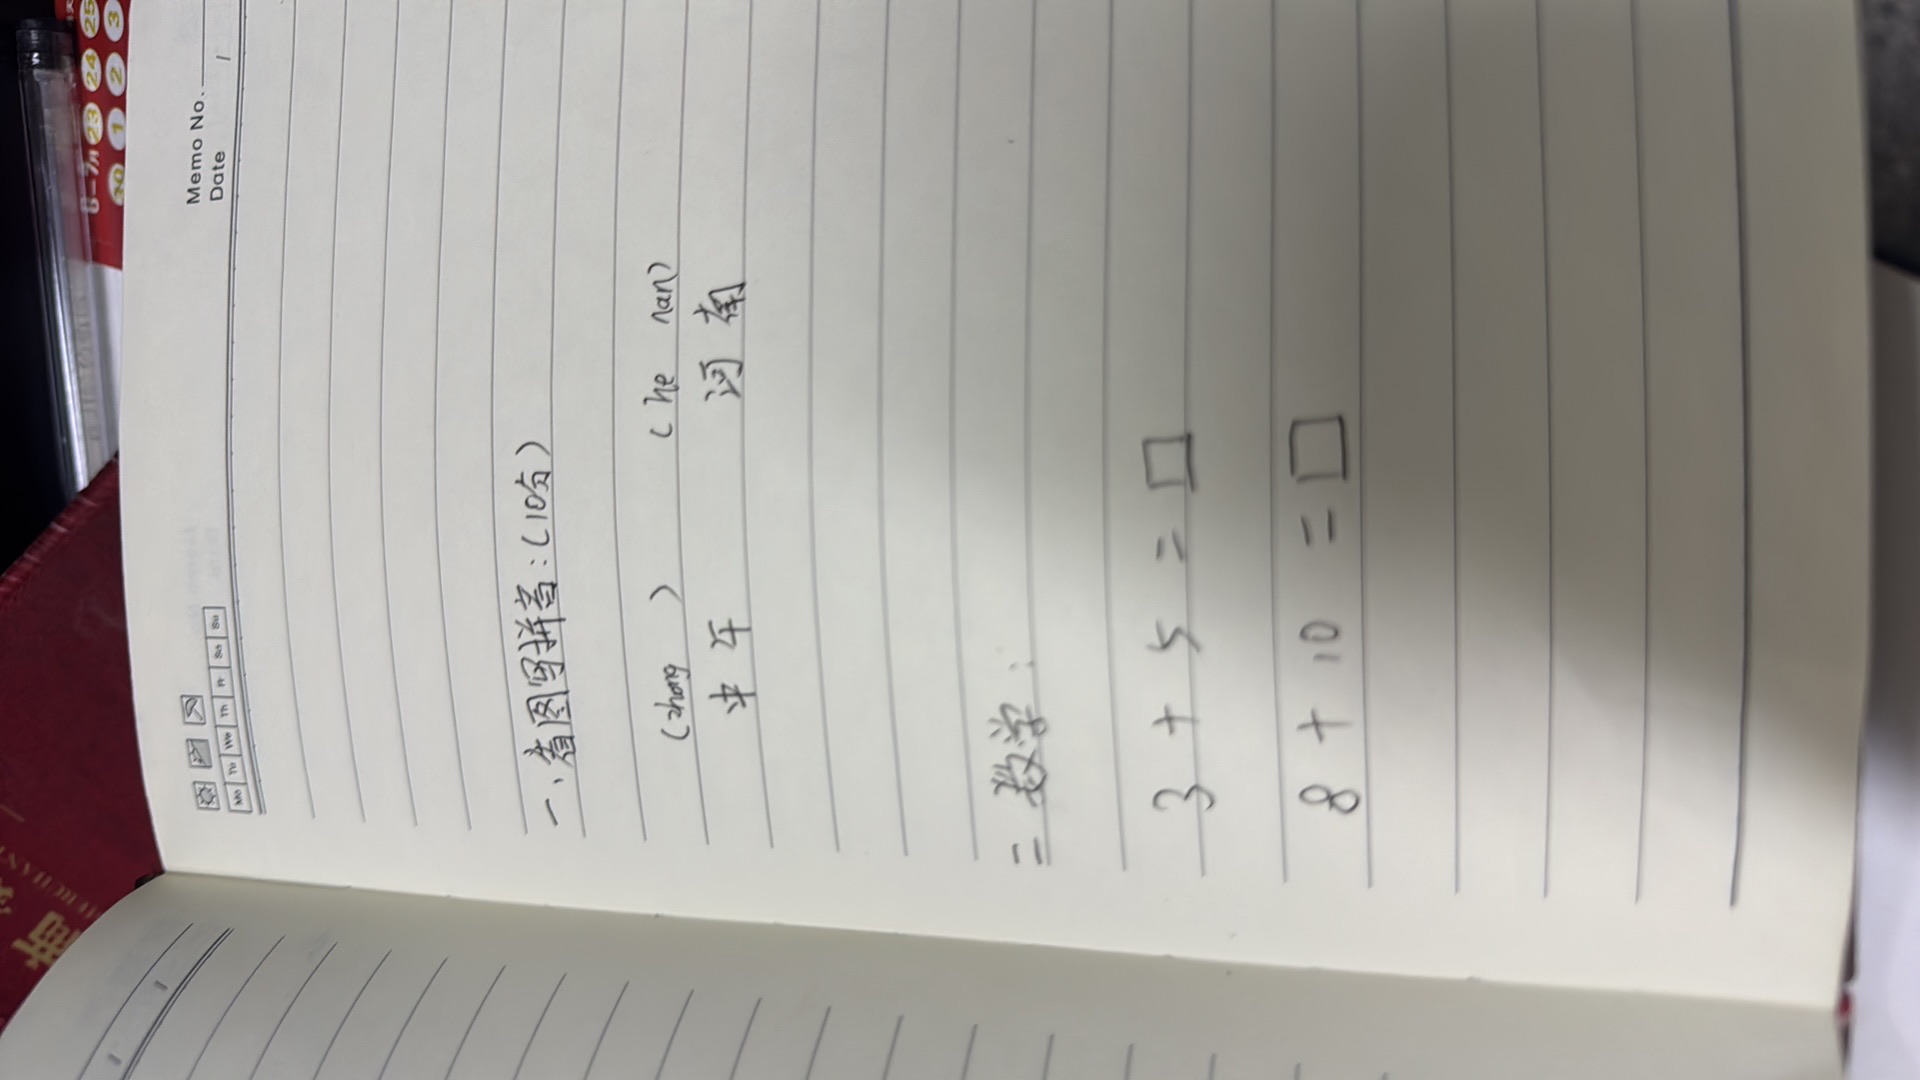 Memo No.
Date /
Mo Tu We Th Fr Sa Su
一、看图写拼音:(10分)
(zhong ) (he nan)
中午 河南
二 数学:
3 + 5 = □
8 + 10 = □
23 24 25
30 1 2 3